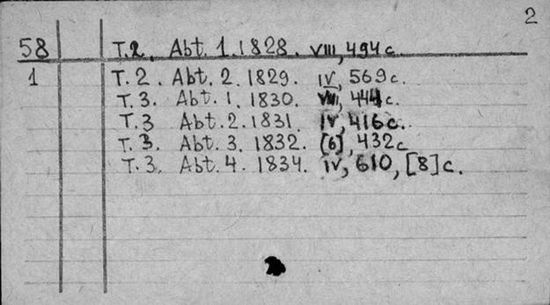 2
58 T.2. Abt. 1. 1828. VIII, 494 с.
1 T. 2. Abt. 2. 1829. IV, 569 с.
T. 3. Abt. 1. 1830. VIII, 444 с.
T. 3 Abt. 2. 1831. IV, 416 с.
T. 3. Abt. 3. 1832. [6], 432 с
T. 3. Abt. 4. 1834. IV, 610, [8] с.